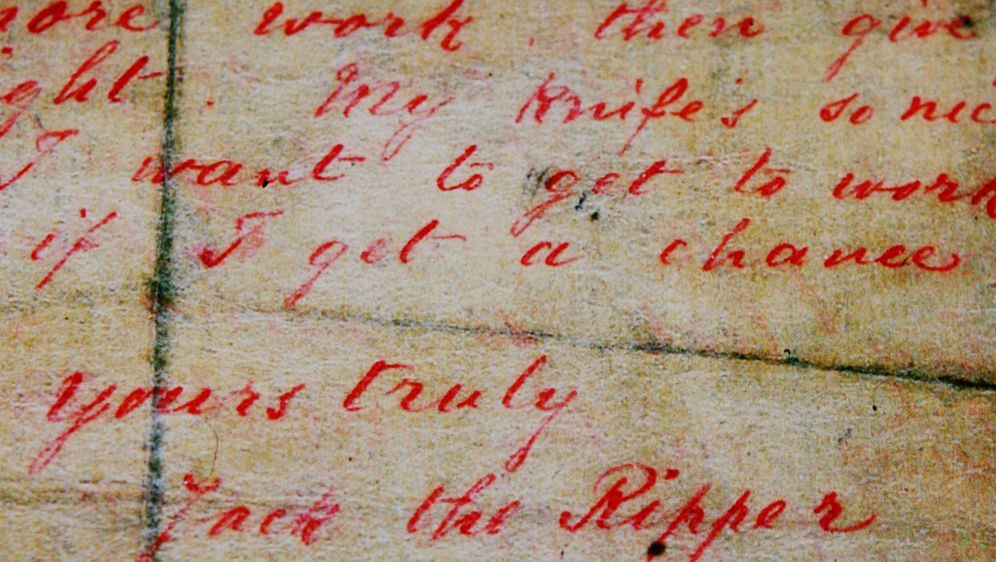 ore work . then give
ght . My knife's so nic
I want to get to work
if I get a chance
yours truly
Jack the Ripper